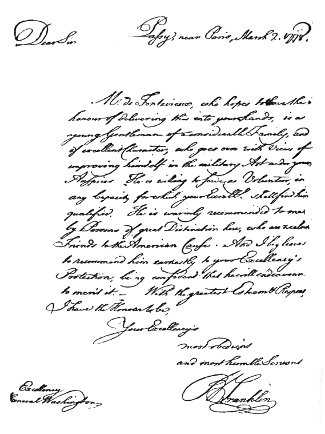 Dear Sir
Passy, near Paris, March 2. 1778.
M. de Fontevieux, who hopes to have the
honour of delivering this into your hands, is a
young Gentleman of considerable Family, and
of excellent Character, who goes over with Views of
improving himself in the military Art under your
Auspices. He is willing to serve as Volunteer, in
any Capacity for which your Excelly. shall find him
qualified. He is warmly recommended to me
by Persons of great Distinction here, who are zealous
Friends to the American Cause. And I beg leave
to recommend him earnestly to your Excellency's
Protection, being confident that he will endeavour
to merit it. — With the greatest Esteem & Respect,
I have the Honour to be,
Your Excellency's
most obedient
and most humble Servant
B Franklin
Excellency
General Washington